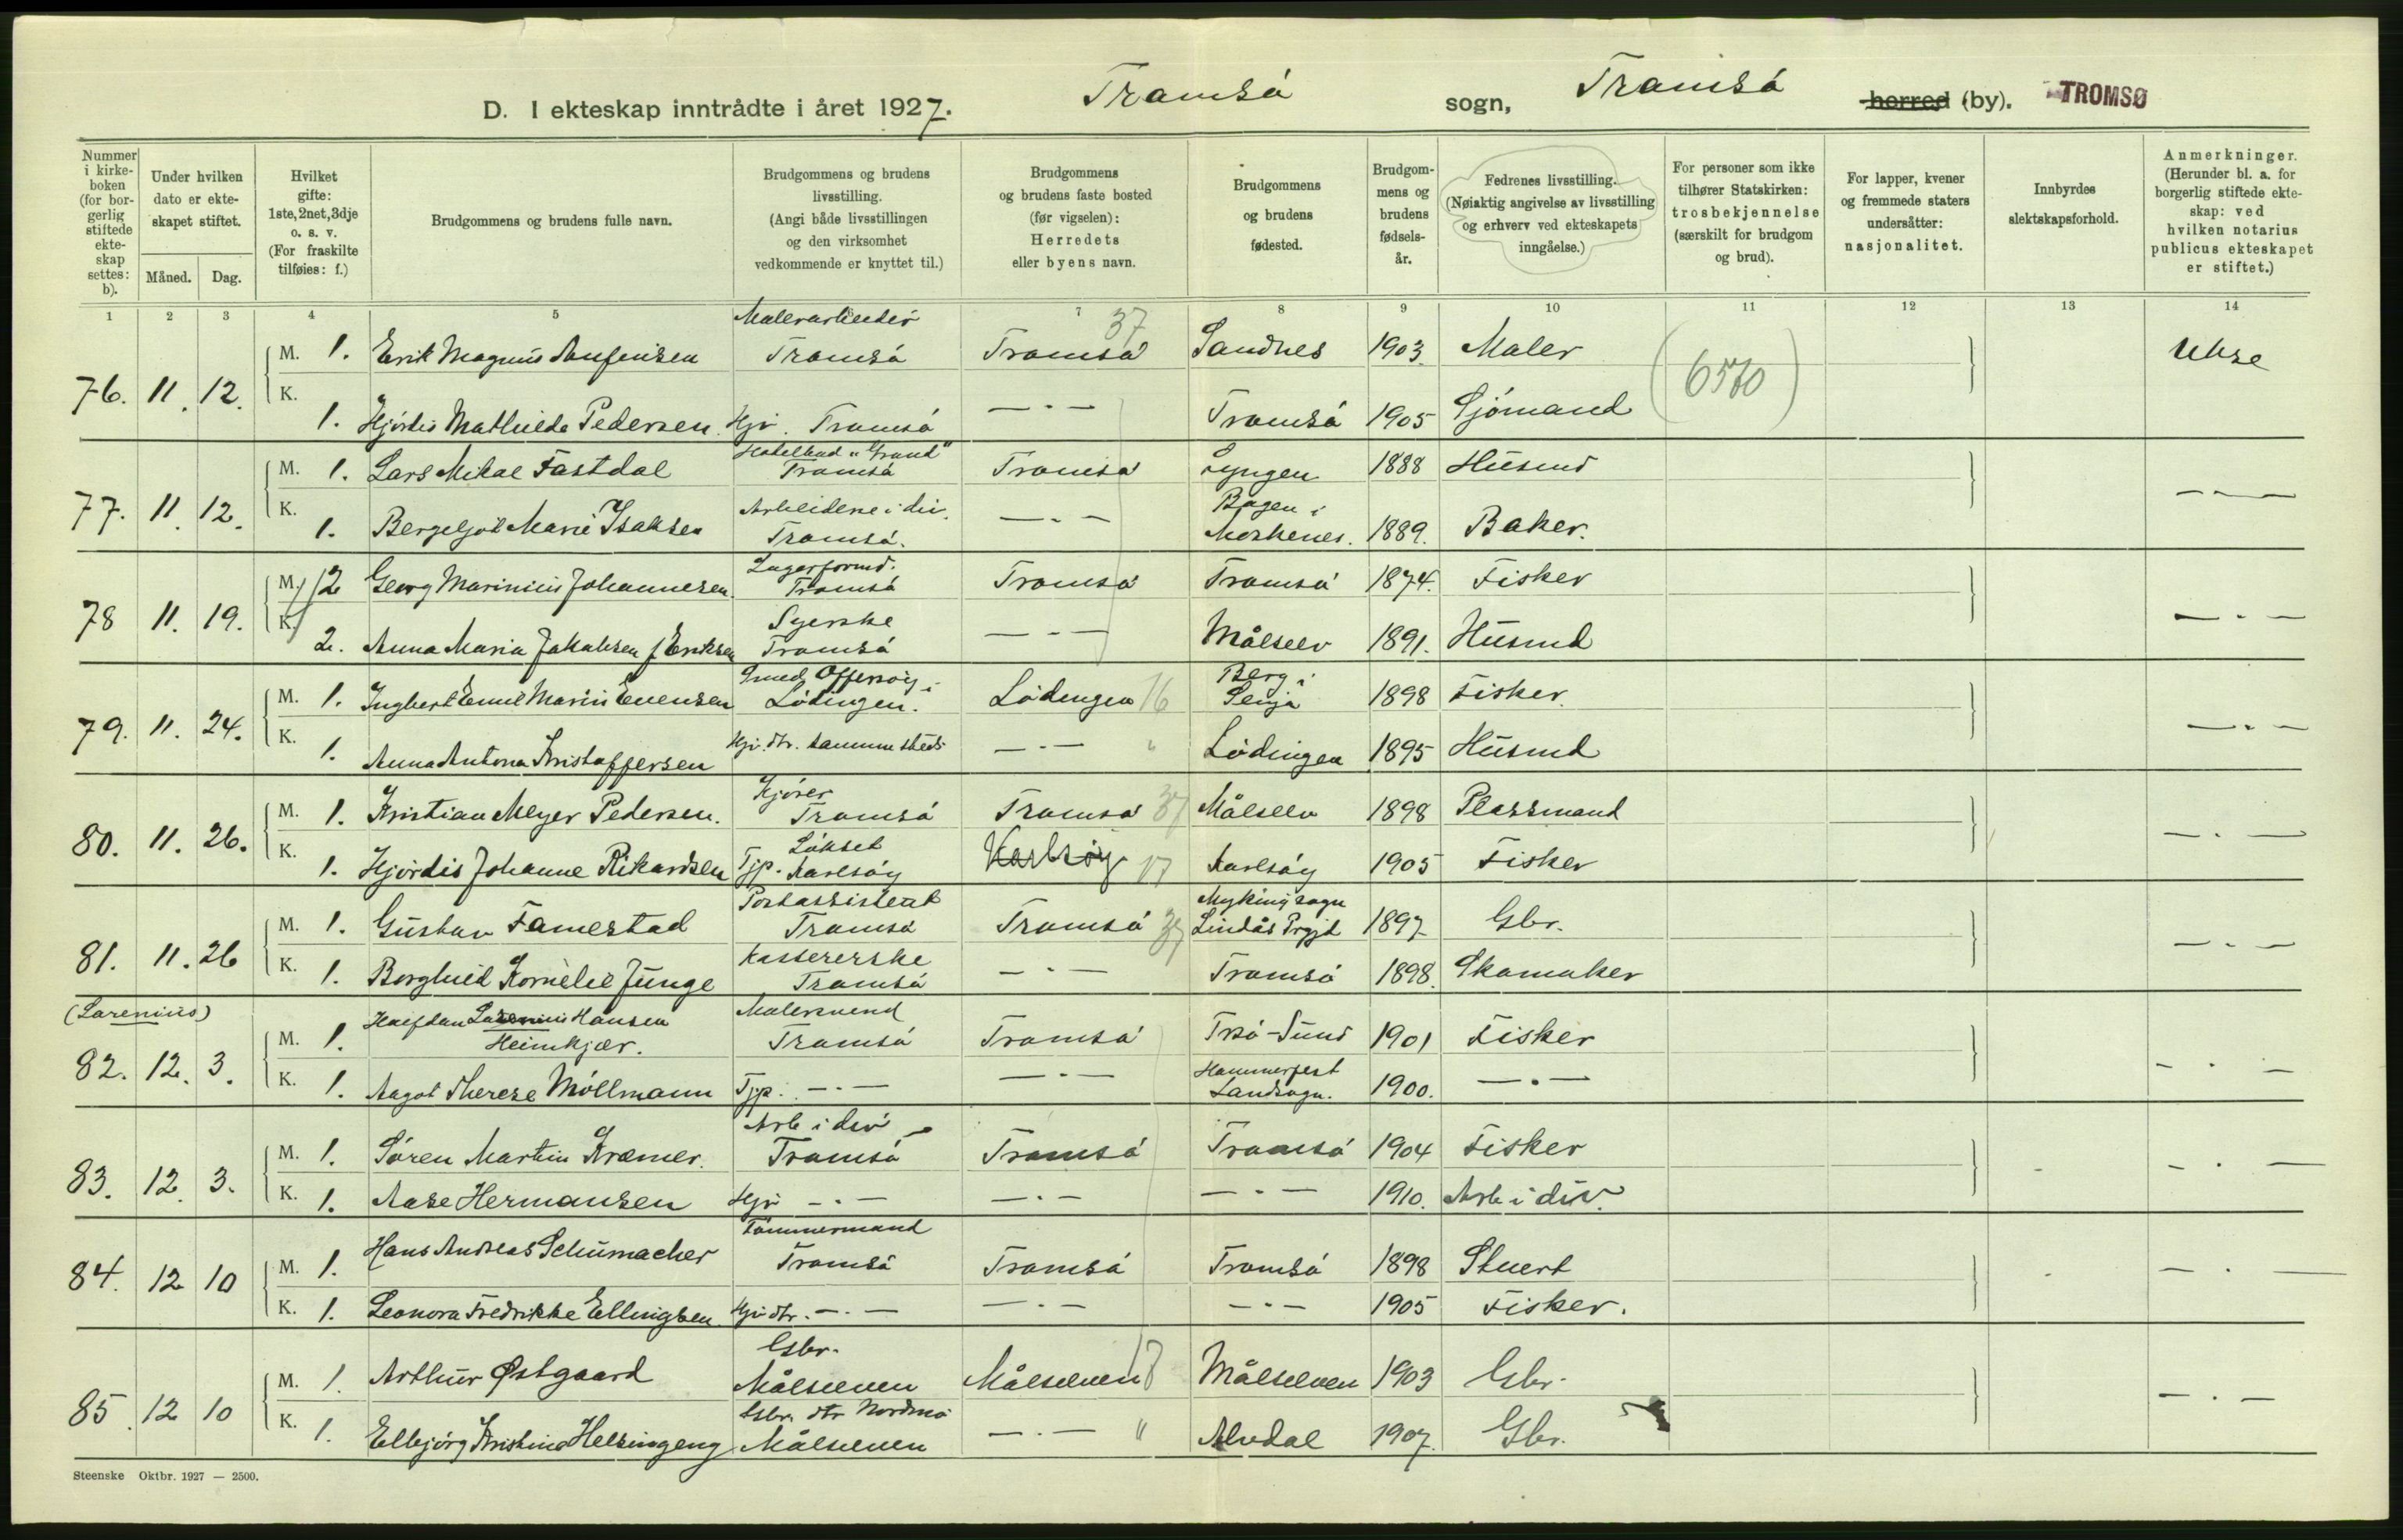 D. I ekteskap inntrådte i året 1927. Tromsö sogn, Tromsö herred (by). TROMSØ
Nummer i kirke-boken (for bor-gerlig stiftede ekte-skap settes: b).
Under hvilken dato er ekte-skapet stiftet.
Måned. Dag.
Hvilket gifte: 1ste, 2net, 3dje o. s. v. (For fraskilte tilføies: f.)
Brudgommens og brudens fulle navn.
Brudgommens og brudens livsstilling. (Angi både livsstillingen og den virksomhet vedkommende er knyttet til.)
Brudgommens og brudens faste bosted (før vigselen): Herredets eller byens navn.
Brudgommens og brudens fødested.
Brudgom-mens og brudens fødsels-år.
Fedrenes livsstilling. (Nøiaktig angivelse av livsstilling og erhverv ved ekteskapets inngåelse.)
For personer som ikke tilhører Statskirken: trosbekjennelse (særskilt for brudgom og brud).
For lapper, kvener og fremmede staters undersåtter: nasjonalitet.
Innbyrdes slektskapsforhold.
Anmerkninger. (Herunder bl. a. for borgerlig stiftede ekte-skap: ved hvilken notarius publicus ekteskapet er stiftet.)
1 2 3 4 5 7 8 9 10 11 12 13 14
Malerarbeider 37
76. 11. 12. M. 1. Erik Magnus Tromsö Tromsö Sandnes 1903. Maler (6510)
K. 1. Hjördis Mathilde Pedersen. Hjv. Tromsö — " — Tromsö 1905 Sjömand
Hotelbud "Grand"
77. 11. 12. M. 1. Lars Mikal Fastdal Tromsö Tromsö Lyngen 1888 Husmd
K. 1. Bergeljot Marie Isaksen Arbeiderske i div. Tromsö. — " — i 1889. Baker.
Lagerformd.
78 11. 19. M. 2 Georg Marinius Johannesen. Tromsö Tromsö Tromsö 1874. Fisker
K. 2. Anna Maria Jakobsen f Eriksen Syerske Tromsö — " — Målselv 1891. Husmd — " —
Smed Offersöy i
79. 11. 24. M. 1. Ingbert Emil Marin Evensen Lödingen. Lödingen 16 Berg i Senja 1898 Fisker.
K. 1. Anna Antona Kristoffersen Hjv. dtr. sammesteds — " — " Lödingen 1895 Husmd — " —
Kjörer
80. 11. 26. M. 1. Kristian Meyer Pedersen. Tromsö Tromsö 37 Målselv 1898 Plassmand
K. 1. Hjördis Johanne Rikardsen Tjp. Lökset Karlsöy Karlsöy 17 Karlsöy 1905 Fisker — " —
Postassistent
81. 11. 26 M. 1. Gustav Famestad Tromsö Tromsö 37 Myking sogn Lindås Prgjd 1897 Gbr.
K. 1. Borghild Kornelie Junge Kassererske Tromsö — " — Tromsö 1898. Skomaker — " —
(Larenius)
Malersvend
82. 12. 3. M. 1. Halfdan Larenius Hansen Heimkjær. Tromsö Tromsö Tsö-Sund 1901 Fisker
K. 1. Aagot Therese Möllmann Tjp. — " — — " — Hammerfest Landsogn. 1900. — " — — " —
Arb i div
83. 12. 3. M. 1. Sören Martin Kræmer. Tromsö Tromsö Tromsö 1904 Fisker
K. 1. Aase Hermansen Hjv — " — — " — — " — 1910. Arb i div. — " —
Tömmermand
84. 12 10 M. 1. Hans Andreas Schumacher Tromsö Tromsö Tromsö 1898 Stuert
K. 1. Leonora Fredrikke Ellingsen Hjv dtr. — " — — " — — " — 1905 Fisker. — " —
Gbr.
85. 12 10 M. 1. Arthur Østgaard Målselven Målselven 18 Målselven 1903 Gbr.
K. 1. Elbjörg Kristine Helsingeng Gbr. dtr Nordmo Målselven — " — " Alvdal 1907. Gbr. — " —
Steenske Oktbr. 1927 — 2500.